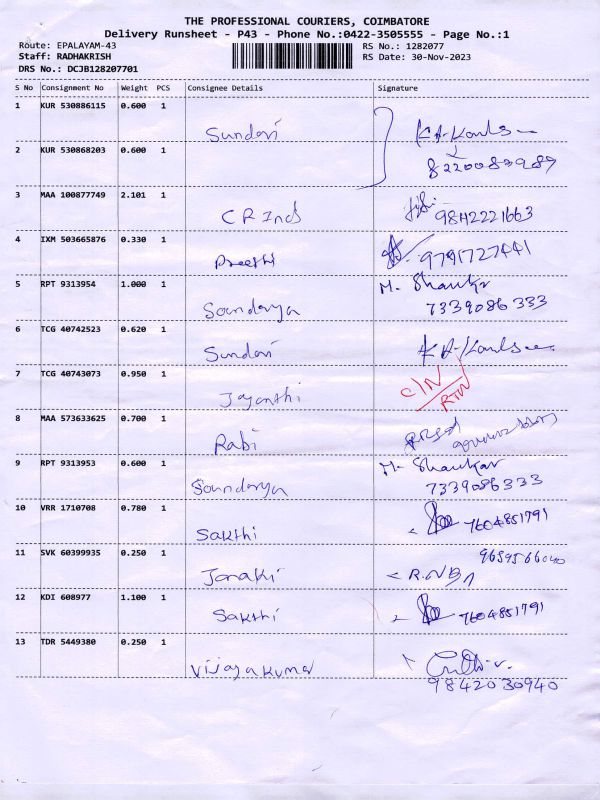 THE PROFESSIONAL COURIERS, COIMBATORE
Delivery Runsheet - P43 - Phone No.:0422-3505555 - Page No.:1
Route: EPALAYAM-43 RS No.: 1282077
Staff: RADHAKRISH RS Date: 30-Nov-2023
DRS No.: DCJB128207701
S No Consignment No Weight PCS Consignee Details Signature
1 KUR 530886115 0.600 1
Sundari
2 KUR 530868203 0.600 1
3 MAA 100877749 2.101 1
CR Ind 9842221663
4 IXM 503665876 0.330 1
Preethi 9791727441
5 RPT 9313954 1.000 1 M. Shankr
Soundarya 7339086333
6 TCG 40742523 0.620 1
Sundari
7 TCG 40743073 0.950 1 C/N
Jayanthi RTN
8 MAA 573633625 0.700 1
Rabi
9 RPT 9313953 0.600 1 M. Shankar
Soundarya 7339086333
10 VRR 1710708 0.780 1 7604851791
Sakthi
11 SVK 60399935 0.250 1 9659566040
Janaki
12 KDI 608977 1.100 1 7604851791
Sakthi
13 TDR 5449380 0.250 1
Vijayakumar
9842030940